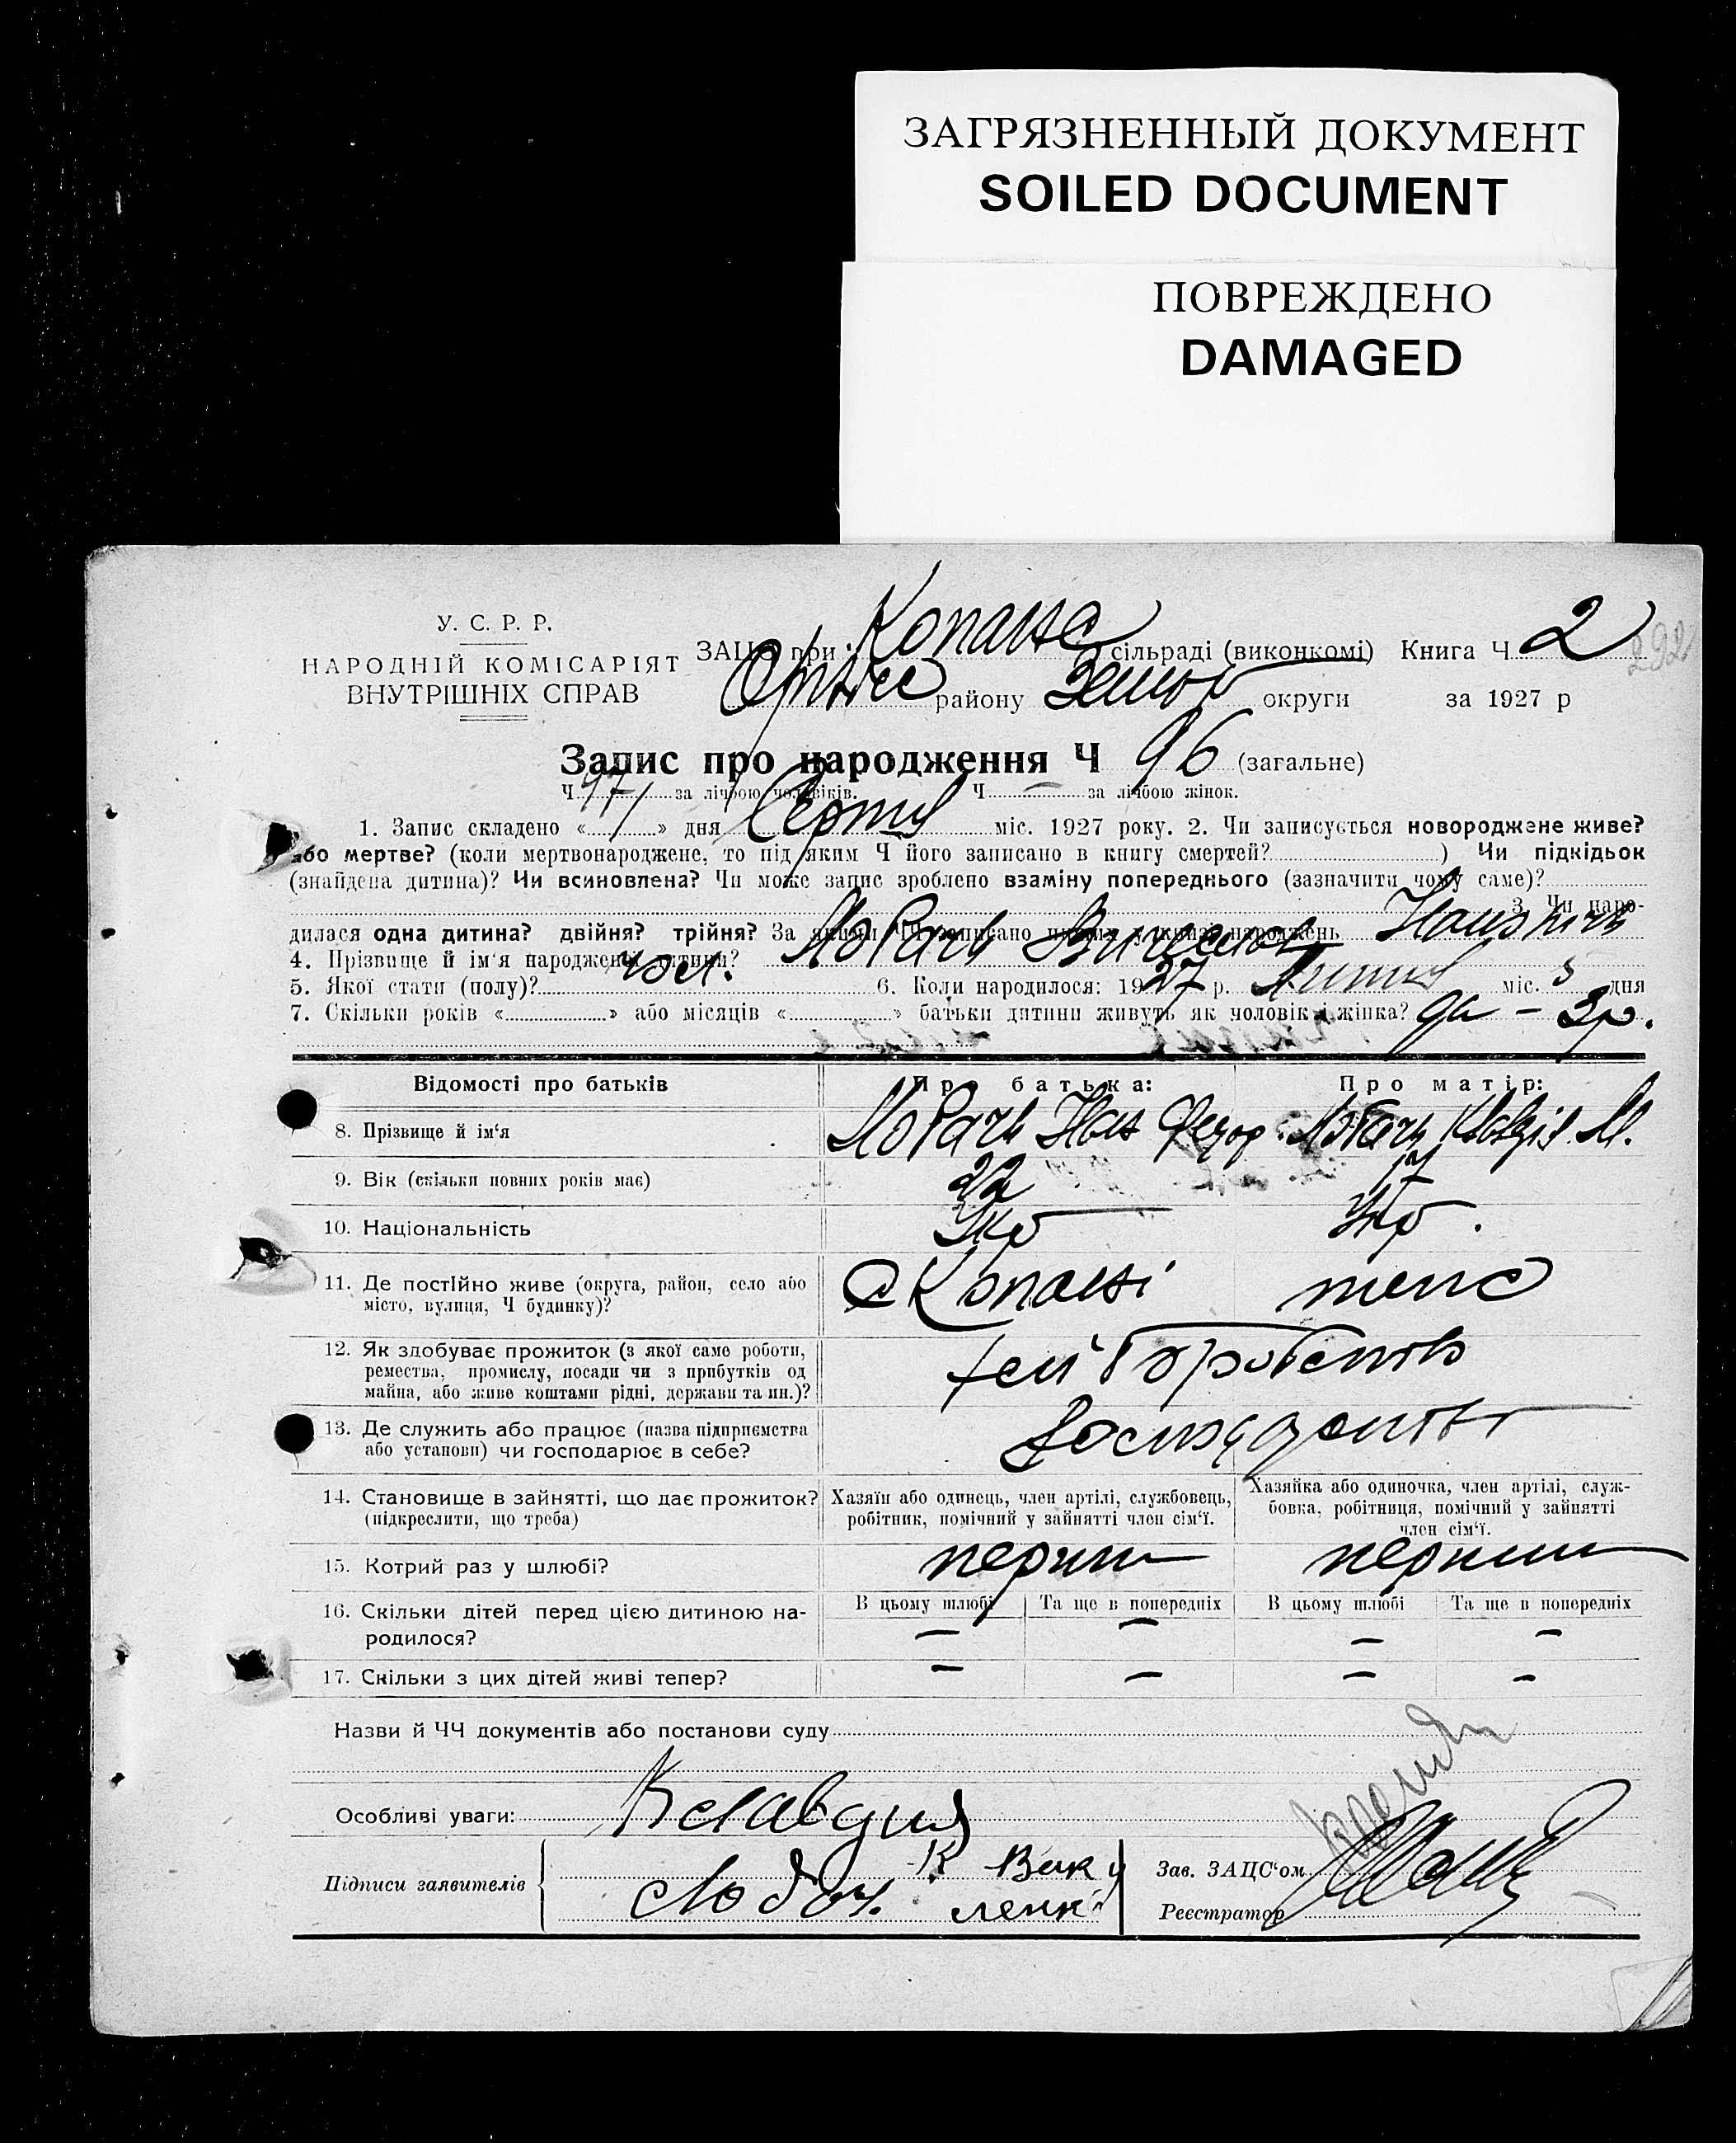 ЗАГРЯЗНЕННЫЙ ДОКУМЕНТ
SOILED DOCUMENT
ПОВРЕЖДЕНО
DAMAGED
У. С. Р. Р.
НАРОДНІЙ КОМІСАРІЯТ
ВНУТРІШНІХ СПРАВ
ЗАЦС при сільраді (виконкомі) Книга Ч 2
292
району округи за 1927 р
Запис про народження Ч 96 (загальне)
Ч 47 за лічбою чоловіків. Ч — за лічбою жінок.
1. Запис складено « 1 » дня Серпня міс. 1927 року. 2. Чи записується новороджене живе?
або мертве? (коли мертвонароджене, то під яким Ч його записано в книгу смертей? ) Чи підкідьок
(знайдена дитина)? Чи всиновлена? Чи може запис зроблено взаміну попереднього (зазначити чому саме)?
3. Чи наро-
дилася одна дитина? двійня? трійня? За якими ЧЧ записано народжень
4. Прізвище й ім'я народженої дитини? Лобач
5. Якої стати (полу)? чол. 6. Коли народилося: 1927 р. Липня міс. 5 дня
7. Скільки років « » або місяців « » батьки дитини живуть як чоловік і жінка? да – 3 р.
Відомості про батьків Про батька: Про матір:
8. Прізвище й ім'я Лобач Федор. Лобач М.
9. Вік (скільки повних років має) 22 17
10. Національність Укр Укр.
11. Де постІйно живе (округа, район, село або
місто, вулиця, Ч будинку)?
с Копані теж
12. Як здобуває прожиток (з якої саме роботи,
ремества, промислу, посади чи з прибутків од
майна, або живе коштами рідні, держави та ин.)?
хліборобств
13. Де служить або працює (назва підприємства
або установи) чи господарює в себе?
14. Становище в зайнятті, що дає прожиток?
(підкреслити, що треба)
Хазяїн або одинець, член артілі, службовець,
робітник, помічний у зайнятті член сім'ї.
Хазяйка або одиночка, член артілі, служ-
бовка, робітниця, помічний у зайнятті
член сім'ї.
15. Котрий раз у шлюбі? перший перший
16. Скільки дітей перед цією дитиною на-
родилося?
В цьому шлюбі Та ще в попередніх В цьому шлюбі Та ще в попередніх
— — — —
17. Скільки з цих дітей живі тепер? — — — —
Назви й ЧЧ документів або постанови суду
Особливі уваги: Клавдия
Підписи заявителів Лобач. К
Зав. ЗАЦС'ом
Реєстратор